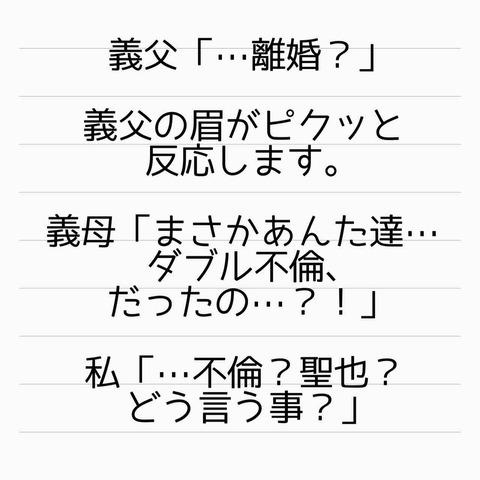 義父「…離婚？」
義父の眉がピクッと
反応します。
義母「まさかあんた達…
ダブル不倫、
だったの…？！」
私「…不倫？聖也？
どう言う事？」